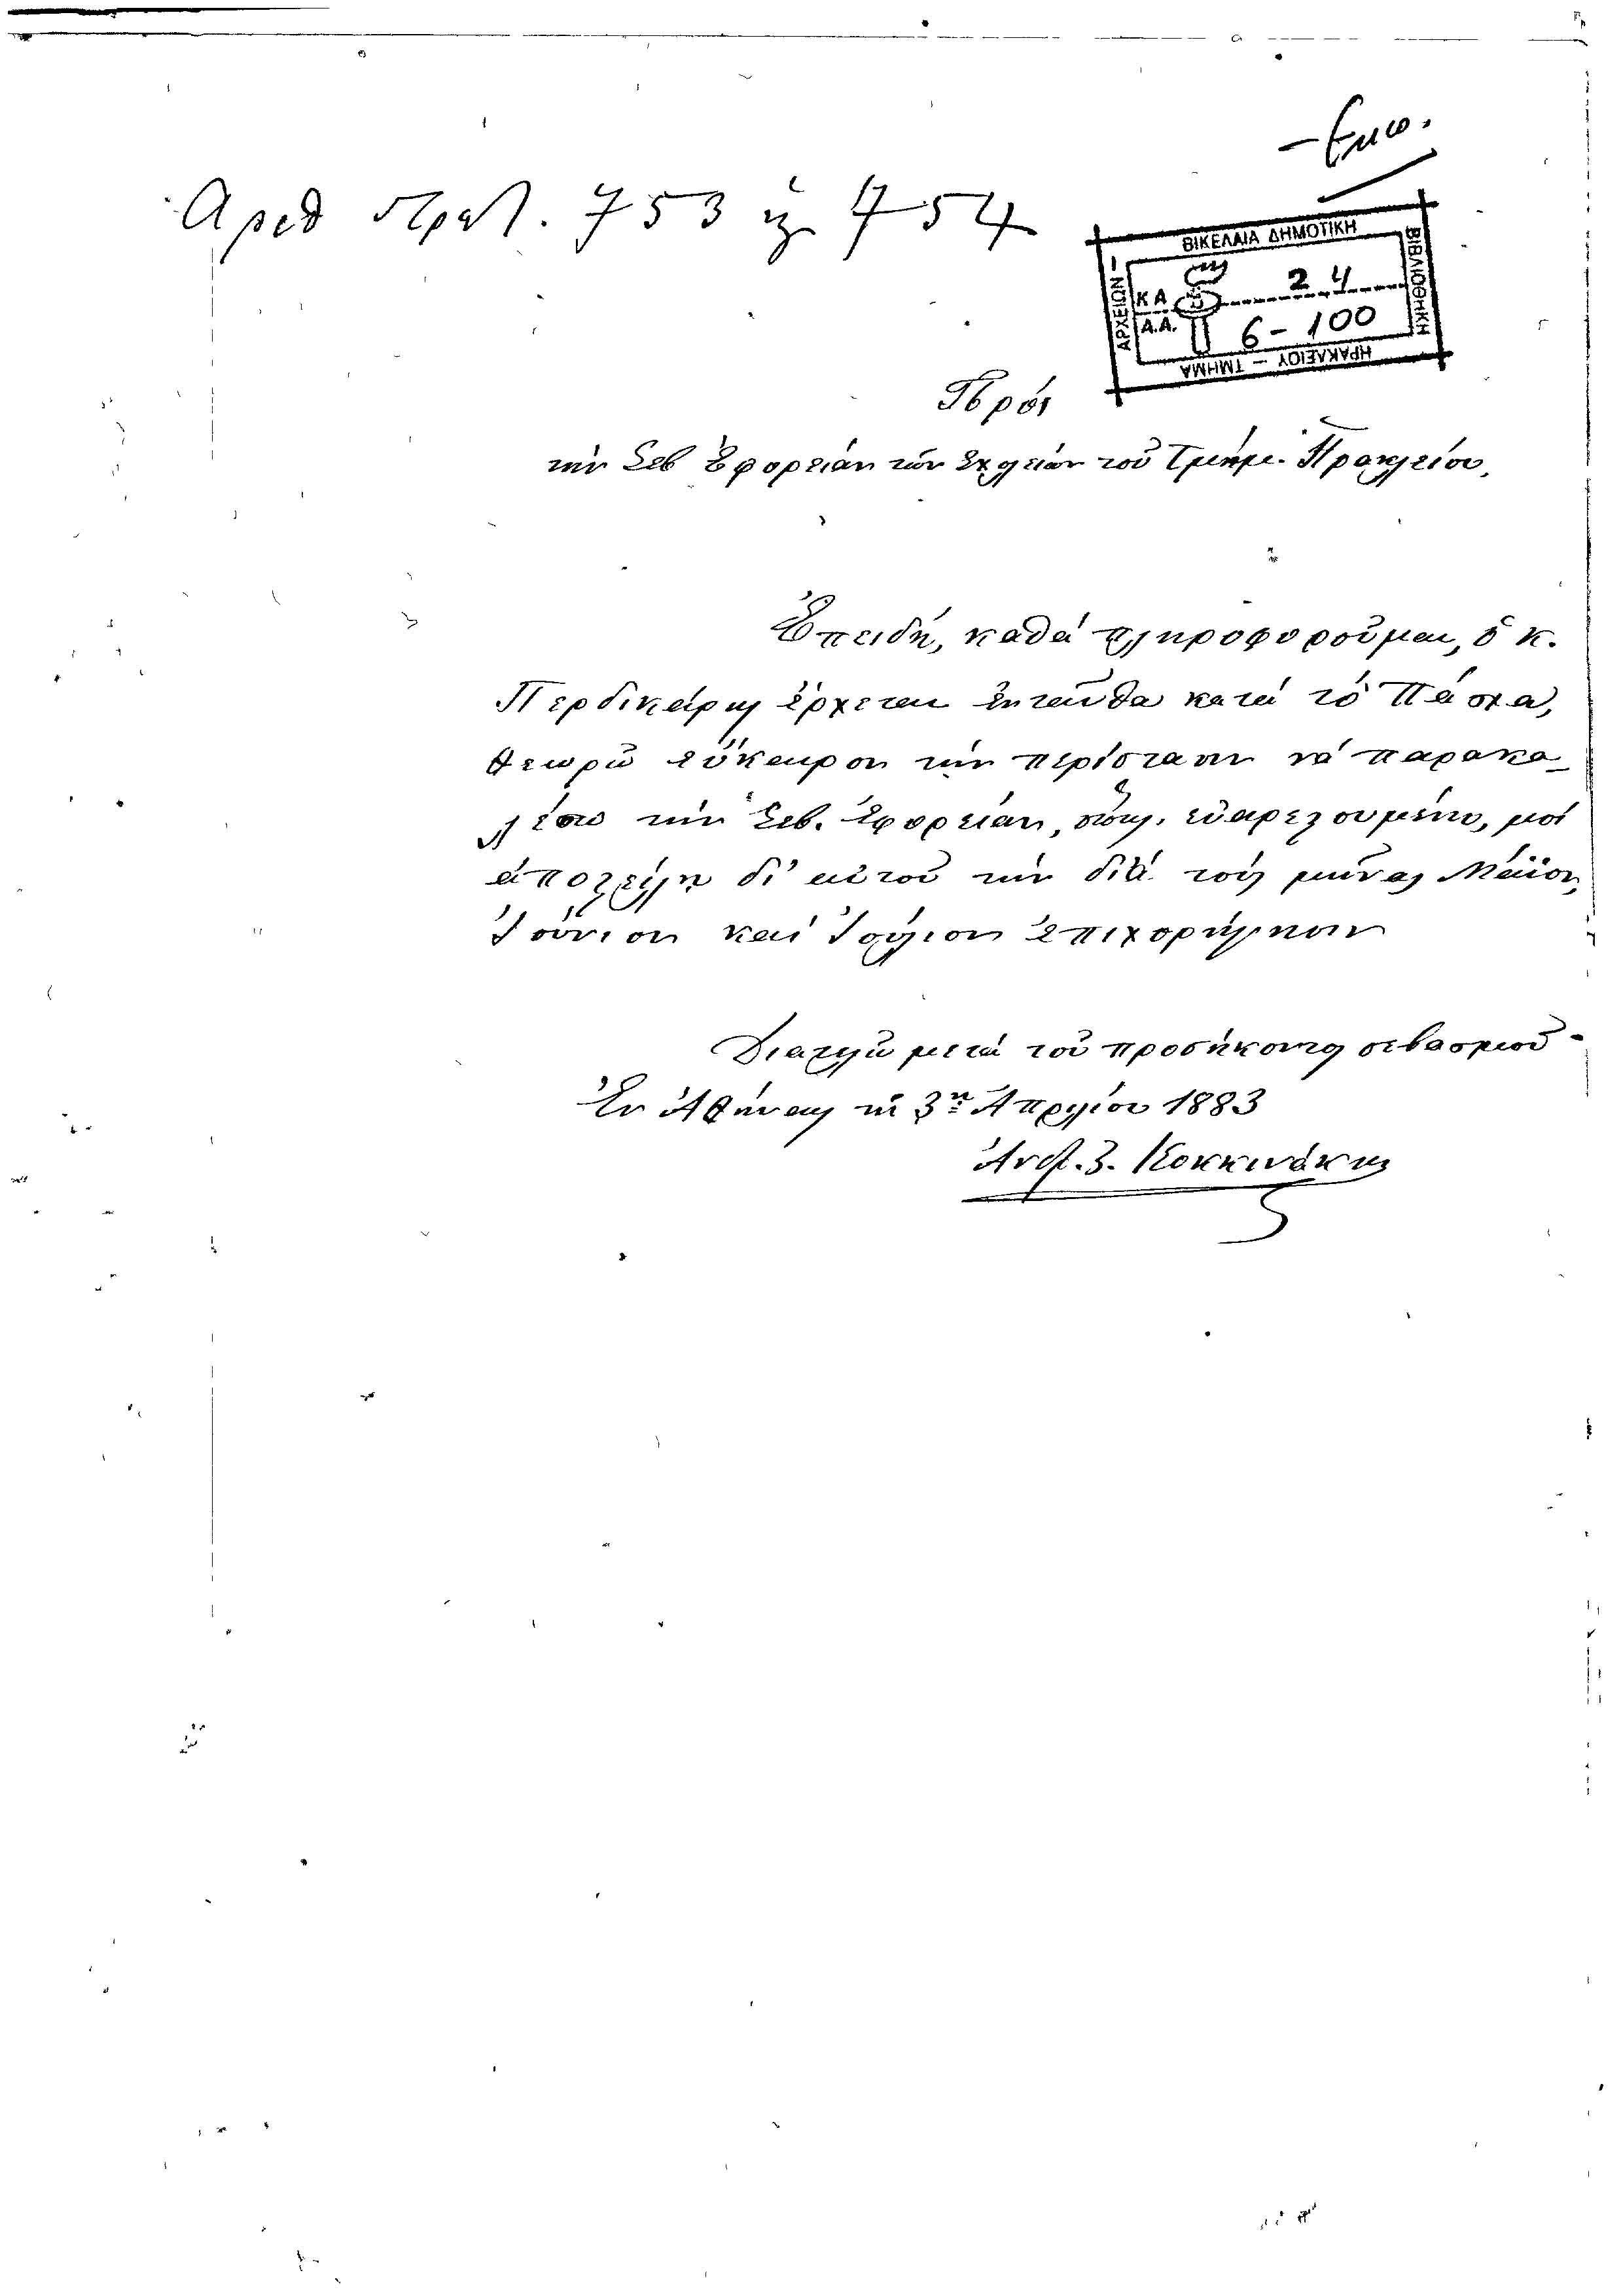 Αριθ πρωτ. 753 ἢ 754
ΒΙΚΕΛΑΙΑ ΔΗΜΟΤΙΚΗ
ΒΙΒΛΙΟΘΗΚΗ
ΗΡΑΚΛΕΙΟΥ – ΤΜΗΜΑ
ΑΡΧΕΙΩΝ –
Κ Α 24
Α.Α. 6-100
Πρός
τὴν Σεβ Ἐφορείαν τῶν Σχολείων τοῦ Τμήμ. Ἡρακλείου,
Ἐπειδή, καθὰ πληροφοροῦμαι, ὁ κ.
Περδικάρης ἔρχεται ἐνταῦθα κατὰ τὸ Πάσχα,
θεωρῶ εὔκαιρον τὴν περίστασιν νὰ παρακα-
λέσω τὴν Σεβ. Ἐφορείαν, ὅπως, εὐαρεστουμένη, μοὶ
ἀποστείλῃ δι' αὐτοῦ τὴν διὰ τοὺς μῆνας Μάϊον,
Ἰούνιον καὶ Ἰούλιον ἐπιχορήγησιν
Διατελῶ μετὰ τοῦ προσήκοντος σεβασμοῦ
Ἐν Ἀθήναις τῇ 3ῃ Ἀπριλίου 1883
Ἀνθ. Ζ. Κοκκινάκης